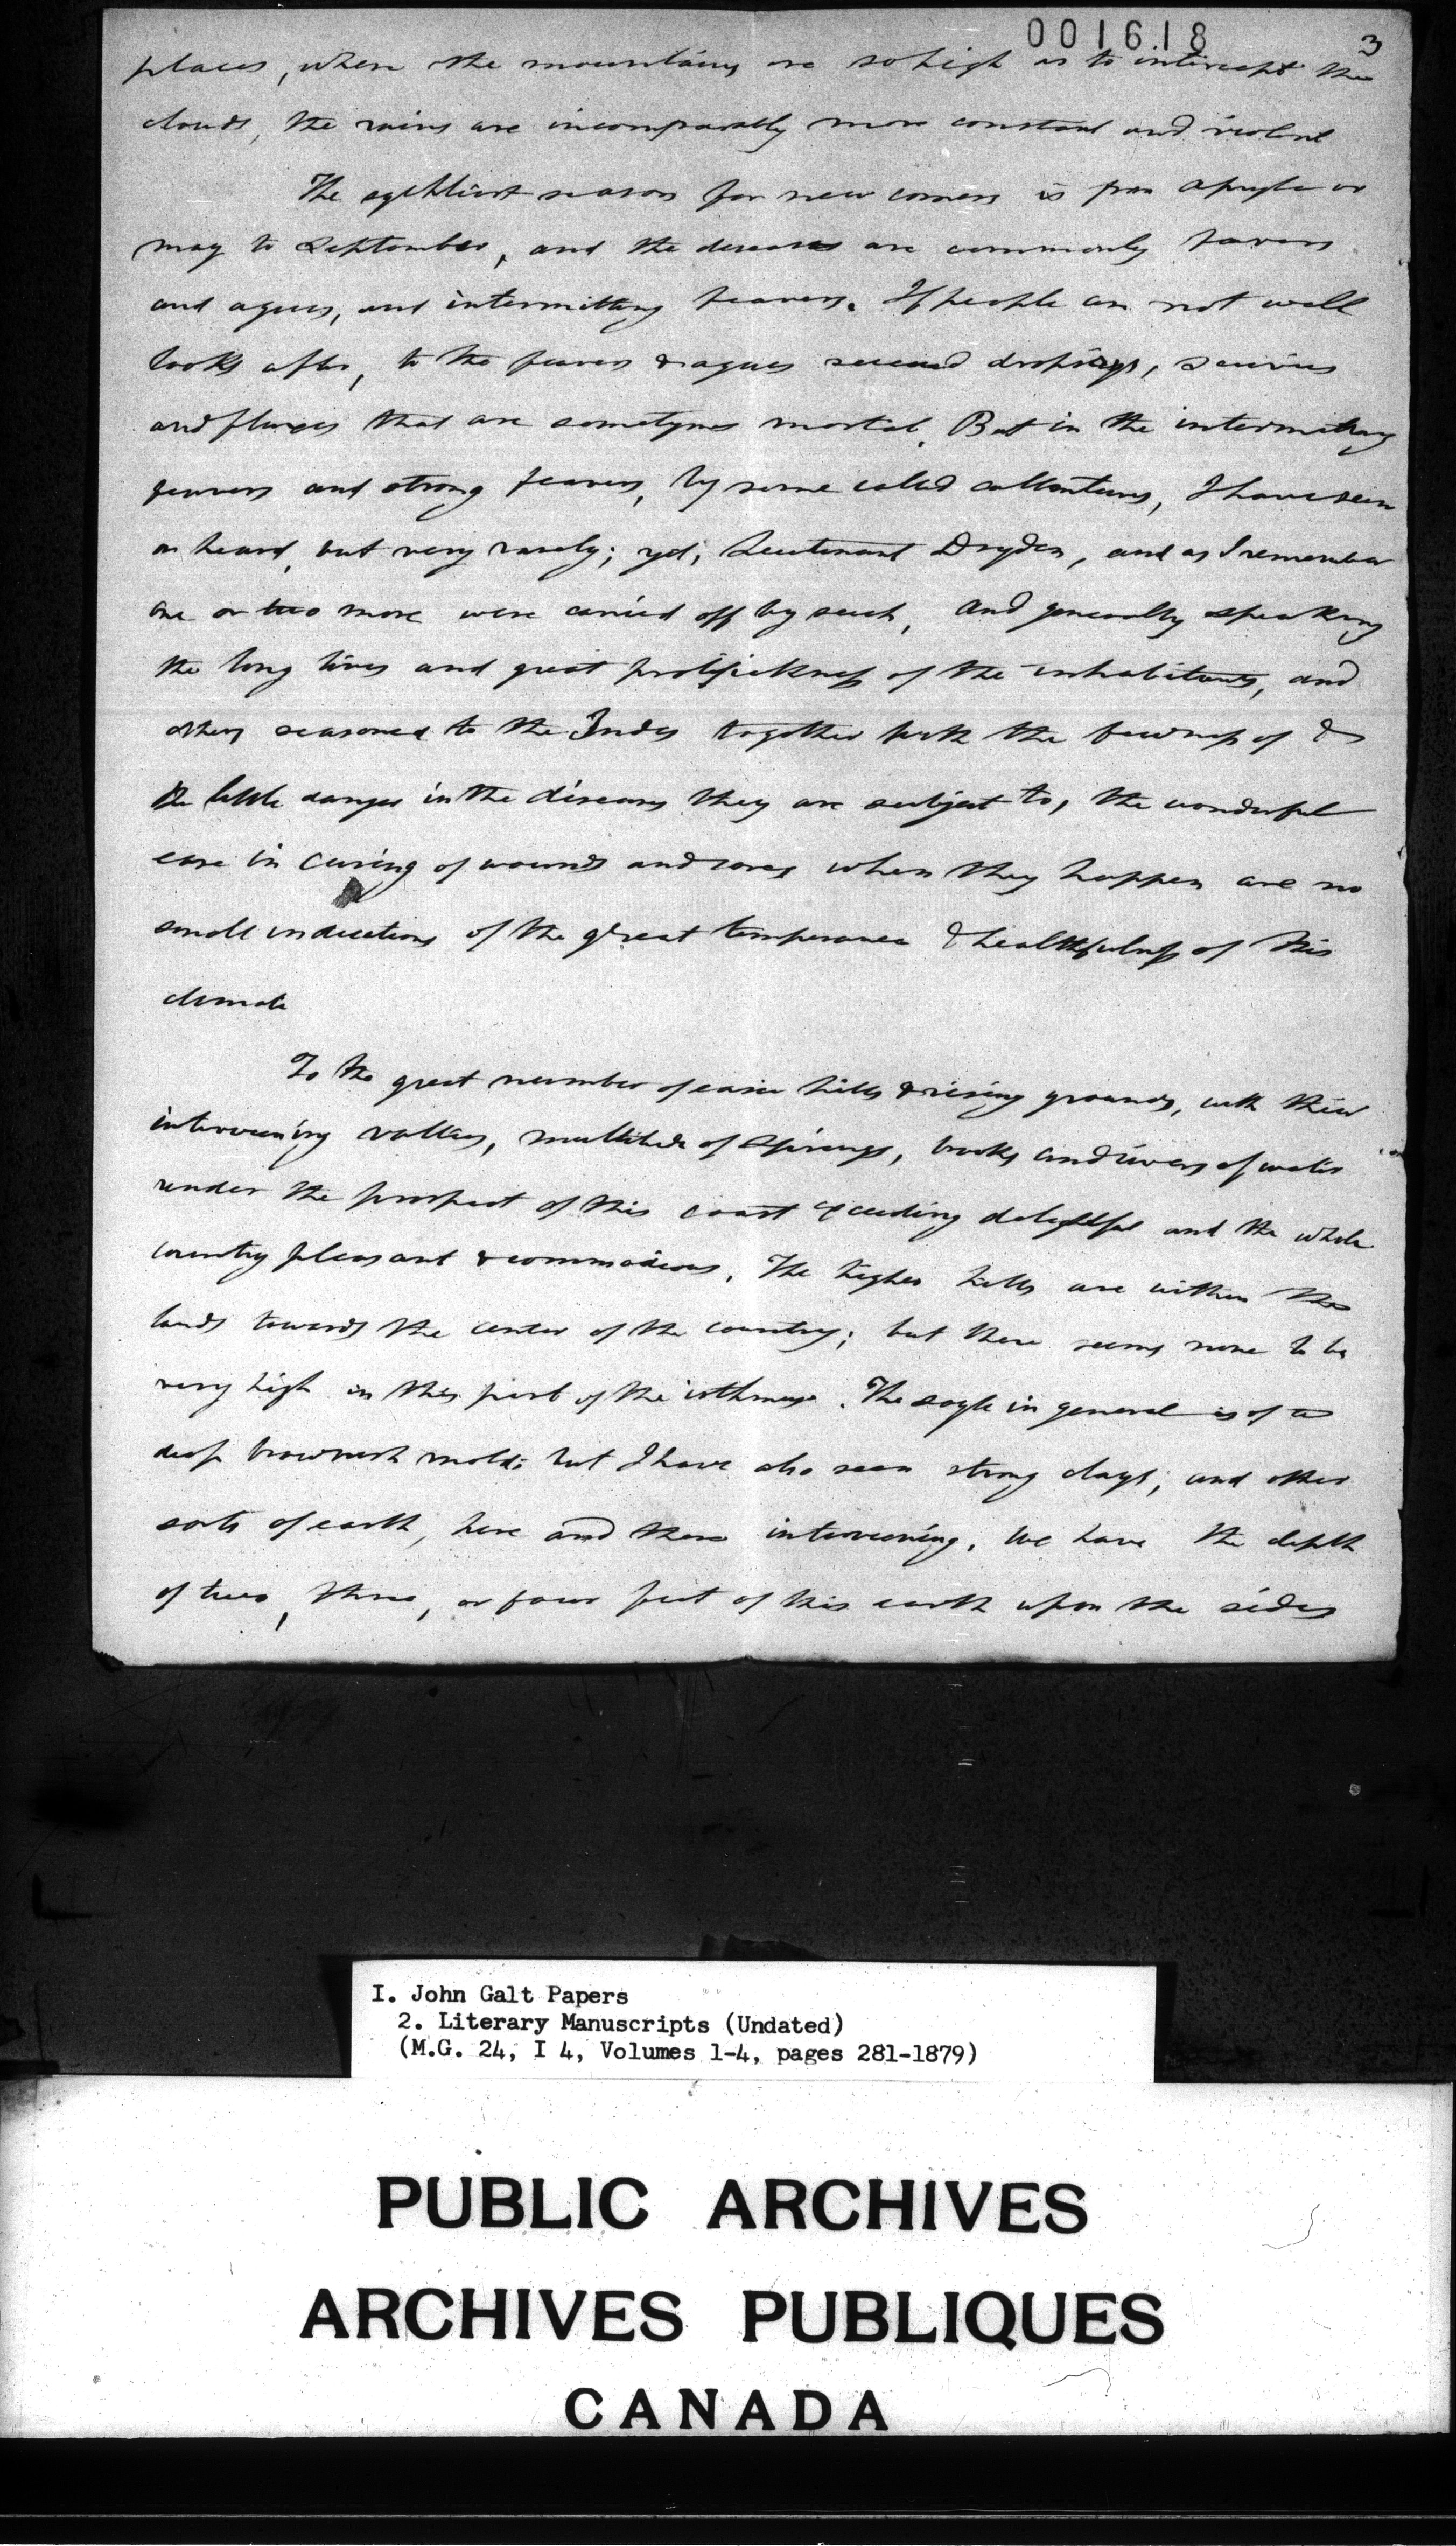 001618
3
places, where the mountains are so high as to intercept the
clouds, the rains are incomparably more constant and violent
The sickliest season for new comers is from Apryle or
may to September, and the diseases are commonly feavers
and agues, and intermitting feavers. If people are not well
looks after, to the feavers & agues succeed dropsies, scurvies
and fluxes that are sometymes mortal. But in the intermitting
feavers and strong feavers, by some called callentures, I have seen
or heard, but very rarely; yet, Lieutenant Dryden, and as I remember
one or two more were carried off by such, and generally speaking
the long lives and great prolifickness of the inhabitants, and
others seasoned to the Indies together with the fewness of &
the little danger in the diseases they are subject to, the wonderful
ease in curing of wounds and sores when they happen are no
small indications of the great temperance & healthfulness of this
climate
To the great number of easie hills & rising grounds, with their
interveening vallies, multitude of springs, brooks and rivers of water
render the prospect of this coast exceeding delightful and the whole
country pleasant & commodious. The higher hills are within the
lands towards the center of the country; but there seems none to be
very high in this part of the isthmus. The soyle in general is of a
deep brownish mold; but I have also seen strong clays, and other
sorts of earth, here and there interveening. We have the depth
of two, three, or four feet of this earth upon the sides
I. John Galt Papers
2. Literary Manuscripts (Undated)
(M.G. 24, I 4, Volumes 1-4, pages 281-1879)
PUBLIC ARCHIVES
ARCHIVES PUBLIQUES
CANADA